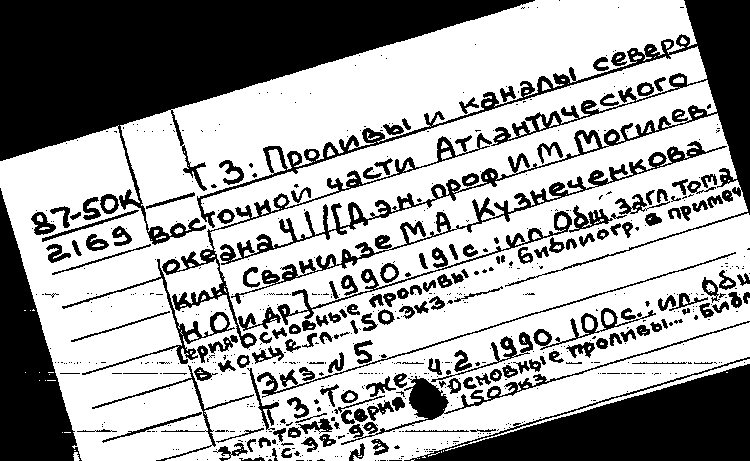 Т. 3: Проливы и каналы северо
87-50К
восточной части Атлантического
2169
океана. Ч.1/[Д.э.н., проф. И.М. Могилев-
кин, Сванидзе М.А., Кузнеченкова
Н.О. и др.] 1990. 191с.: ил. Общ. загл. тома
Серия "Основные проливы...". Библиогр. в примеч
в конце гл. 150 экз.
Экз. N 5.
Т. 3: То же. Ч.2. 1990. 100с.: ил. Общ.
загл. тома: Серия "Основные проливы...". Библ
с. 98-99. 150 экз
N 3.